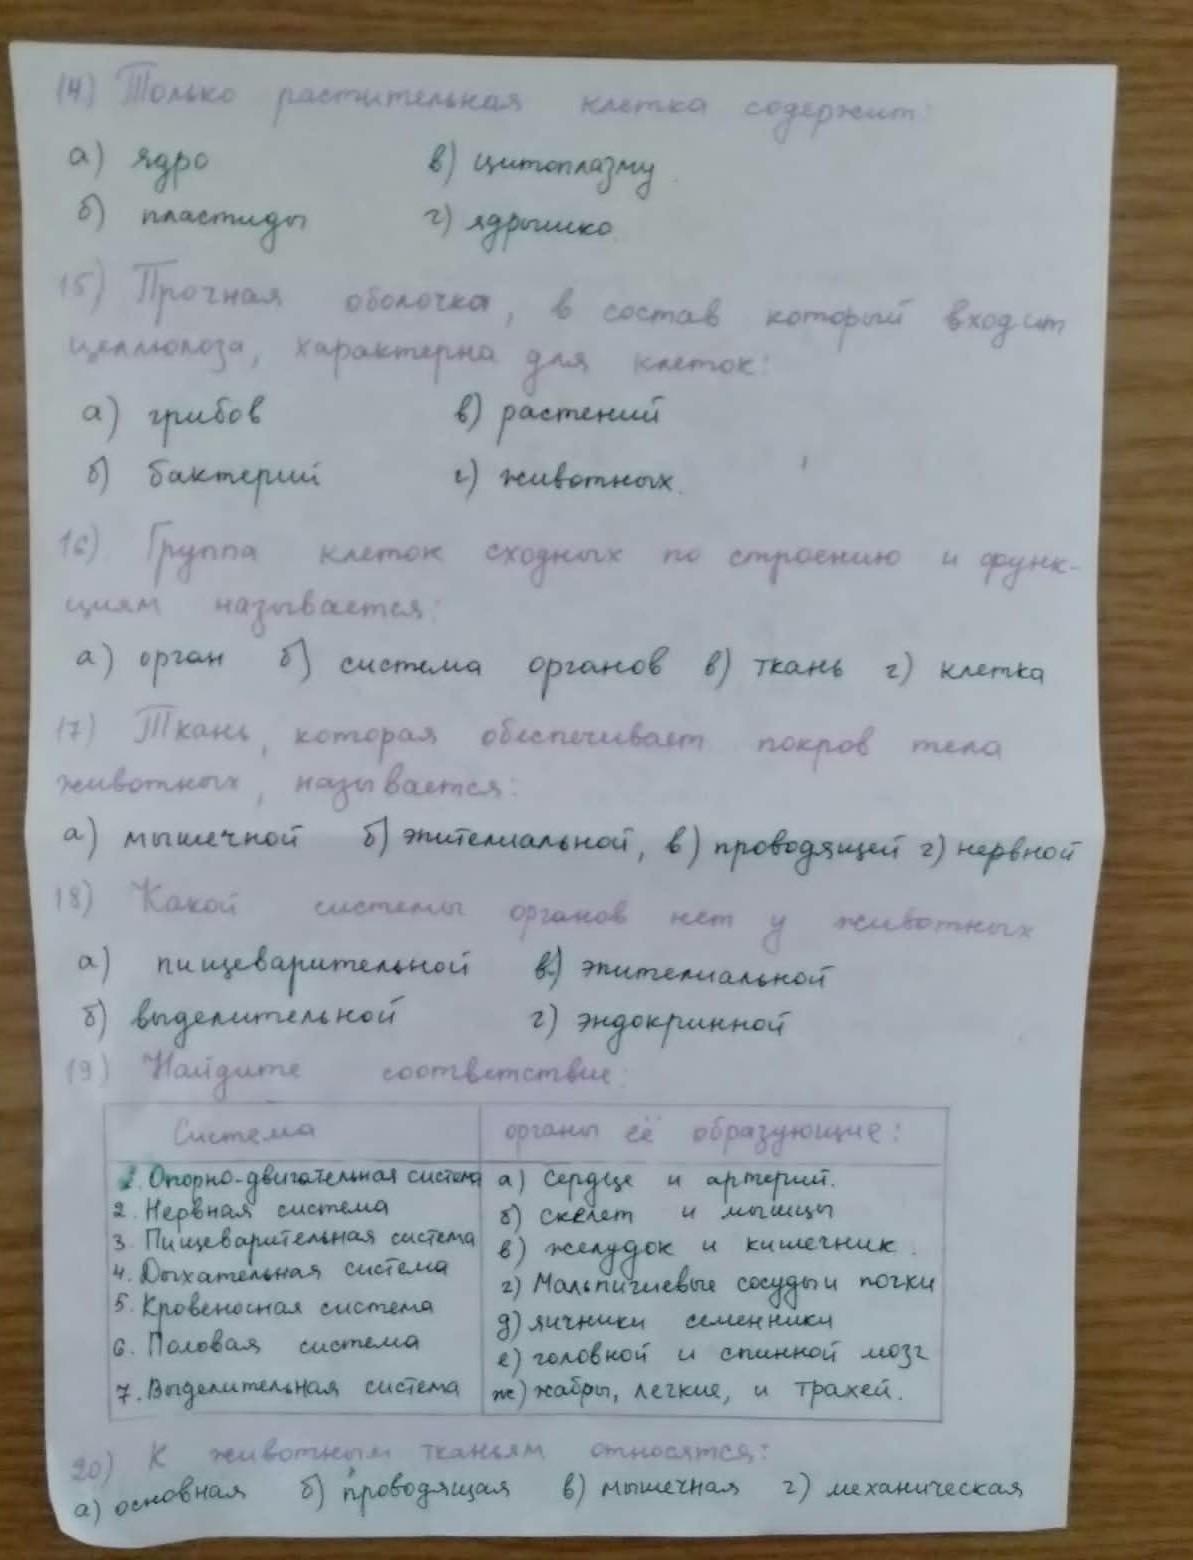 14) Только растительная клетка содержит:
а) ядро в) цитоплазму.
б) пластиды г) ядрышко.
15) Прочная оболочка, в состав который входит
целлюлоза, характерна для клеток:
а) грибов в) растений
б) бактерий г) животных.
16) Группа клеток сходных по строению и функ-
циям называется:
а) орган б) система органов в) ткань г) клетка
17) Ткань, которая обеспечивает покров тела
животных, называется:
а) мышечной б) эпителиальной, в) проводящей г) нервной
18) Какой системы органов нет у животных
а) пищеварительной в) эпителиальной
б) выделительной г) эндокринной
19) Найдите соответствие:
Система органы её образующие:
1. Опорно-двигательная система а) сердце и артерий.
2. Нервная система б) скелет и мышцы
3. Пищеварительная система в) желудок и кишечник.
4. Дыхательная система г) Мальпигиевые сосуды и почки
5. Кровеносная система д) яичники семенники
6. Половая система е) головной и спинной мозг
7. Выделительная система ж) жабры, легкие, и трахей.
20) К животным тканьям относятся:
а) основная б) проводящая в) мышечная г) механическая